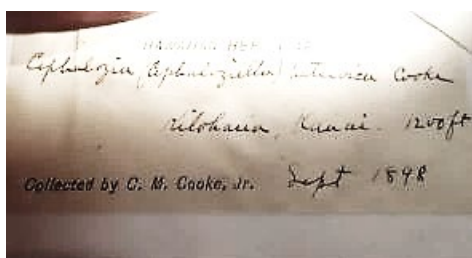 HAWAIIAN HEPATICAE
Cephalozia (Cephaloziella) Cooke
Kilohana, Kauai. 1200ft
Collected by C. M. Cooke, Jr. Sept 1898